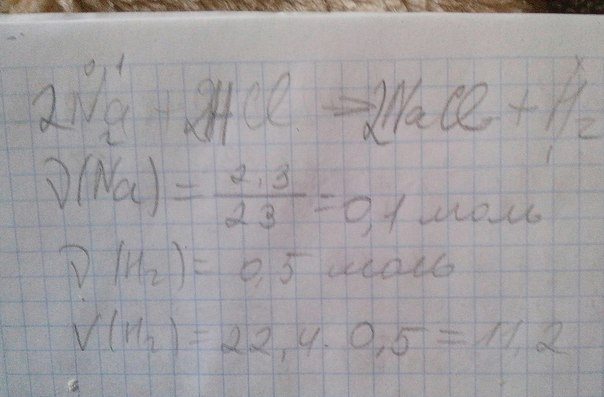 0,1 x
2Na + 2HCl => 2NaCl + H₂
2 1
ν(Na) = 2,3 / 23 = 0,1 моль
ν(H₂) = 0,5 моль
V(H₂) = 22,4 · 0,5 = 11,2